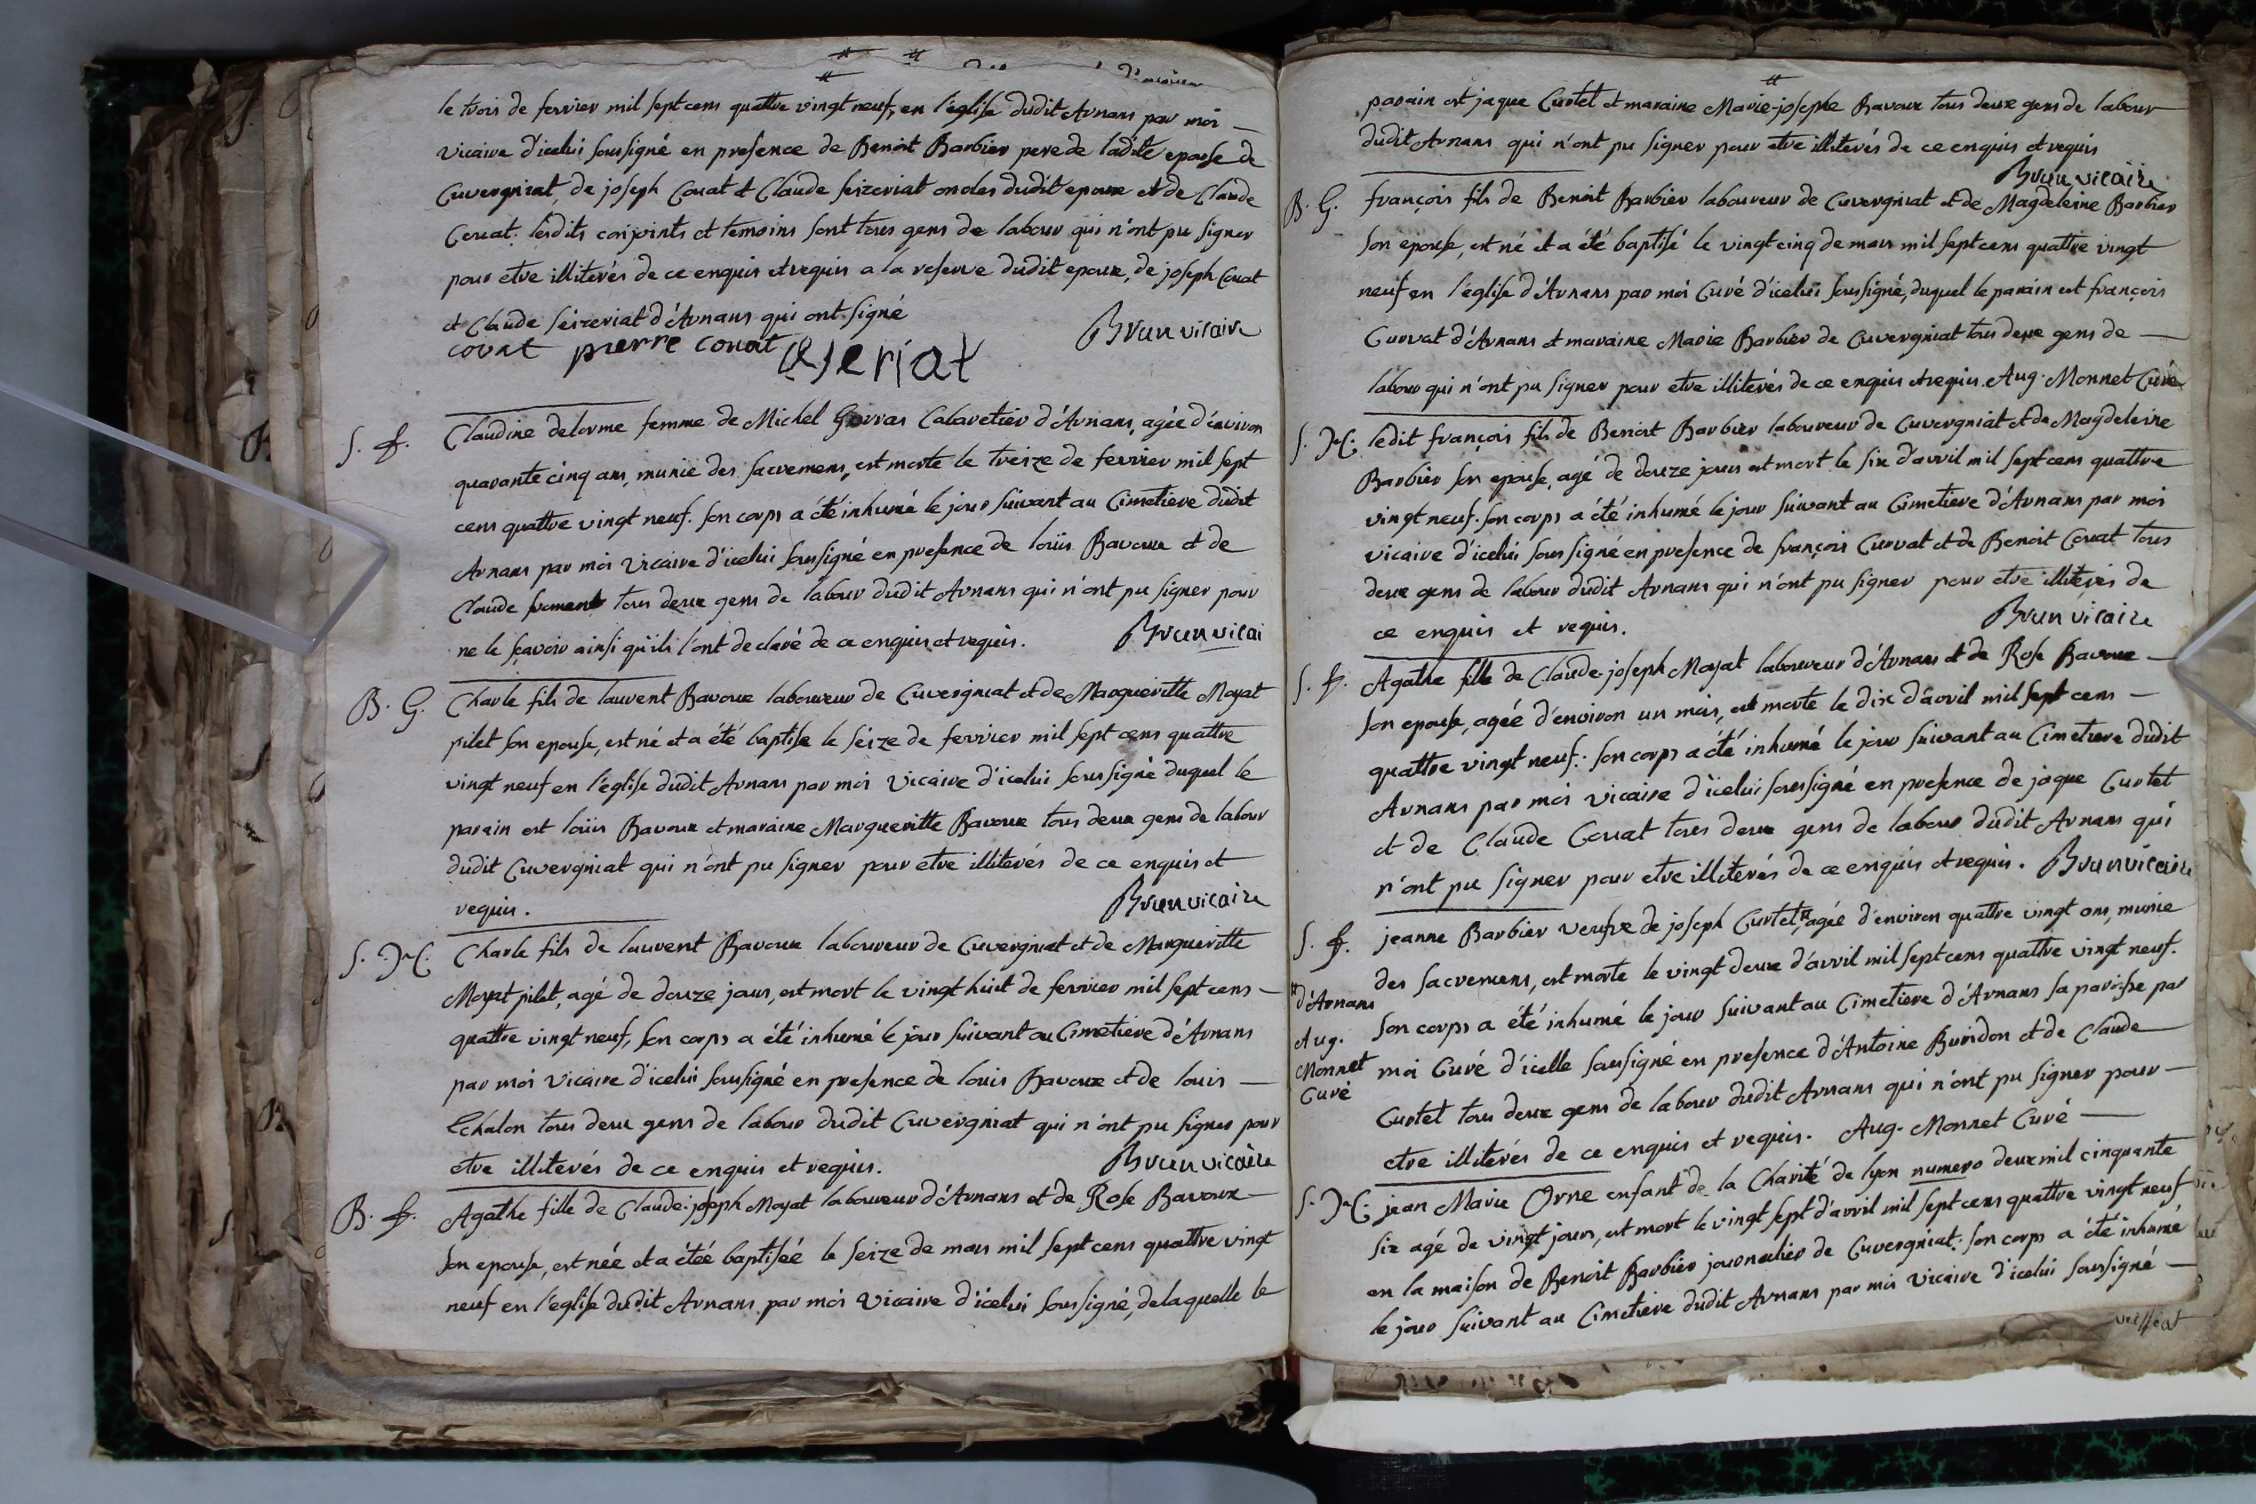 le trois de fevrier mil sept cens quattre vingt neuf, en l'église dudit Arnans par moi
vicaire d'icelui soussigné en presence de Benoit Barbier pere de ladite epouse de
Cuvergniat, de joseph Couat et Claude seizeriat oncles dudit epoux et de Claude
Couat. lesdits conjoints et temoins sont tous gens de labour qui n'ont pu signer
pour etre illiterés de ce enquis et requis a la reserve dudit epoux, de joseph Couat
et Claude seizeriat d'Arnans qui ont signé
couat pierre couat seseriat Brun vicaire
S. f. Claudine delorme femme de Michel Gorras Cabaretier d'Arnans, agée d'environ
quarante cinq ans, munie des sacremens, est morte le treize de fevrier mil sept
cens quattre vingt neuf. son corps a été inhumé le jour suivant au Cimetiere dudit
Arnans par moi vicaire d'icelui soussigné en presence de loüis Bavoux et de
Claude froment tous deux gens de labour dudit Arnans qui n'ont pu signer pour
ne le sçavoir ainsi qu'ils l'ont declaré de ce enquis et requis. Brun vicai
B. G. Charle fils de laurent Bavoux laboureur de Cuvergniat et de Margueritte Moyat
pilet son epouse, est né et a été baptise le séize de fevrier mil sept cens quattre
vingt neuf en l'église dudit Arnans par moi vicaire d'icelui soussigné duquel le
parain est loüis Bavoux et maraine Margueritte Bavoux tous deux gens de labour
dudit Cuvergniat qui n'ont pu signer pour etre illiterés de ce enquis et
requis. Brun vicaire
S. M. Charle fils de laurent Bavoux laboureur de Cuvergniat et de Margueritte
Moyat pilet, agé de douze jours, est mort le vingt huit de fevrier mil sept cens
quattre vingt neuf, son corps a été inhumé le jour suivant au Cimetiere d'Arnans
par moi vicaire d'icelui soussigné en presence de louis Bavoux et de louis
Echalon tous deux gens de labour dudit Cuvergniat qui n'ont pu signer pour
etre illiterés de ce enquis et requis. Brun vicaire
B. f. Agathe fille de Claude-joseph Moyat laboureur d'Arnans et de Rose Bavoux
son epouse, est née et a étée baptiséé le seize de mars mil sept cens quattre vingt
neuf en l'eglise dudit Arnans par moi vicaire d'icelui soussigné, delaquelle le
parain est jaque Curtet et maraine Marie-josephe Bavoux tous deux gens de labour
dudit Arnans qui n'ont pu signer pour etre illiterés de ce enquis et requis
Brun vicaire
B. G. françois fils de Benoit Barbier laboureur de Cuvergniat et de Magdeleine Barbier
son epouse, est né et a été baptisé le vingt cinq de mars mil sept cens quattre vingt
neuf en l'église d'Arnans par moi Curé d'icelui soussigné, duquel le parain est françois
Curvat d'Arnans et maraine Marie Barbier de Cuvergniat tous deux gens de
labour qui n'ont pu signer pour etre illiterés de ce enquis et requis. Aug. Monnet Curé
S. M. ledit françois fils de Benoit Barbier laboureur de Cuvergniat et de Magdeleine
Barbier son epouse, agé de douze jours est mort le six d'avril mil sept cens quattre
vingt neuf. son corps a été inhumé le jour suivant au Cimetiere d'Arnans par moi
vicaire d'icelui soussigné en presence de françois Curvat et de Benoit Couat tous
deux gens de labour dudit Arnans qui n'ont pu signer pour etre illiterés de
ce enquis et requis. Brun vicaire
S. f. Agathe fille de Claude-joseph Moyat laboureur d'Arnans et de Rose Bavoux
son epouse, agée d'environ un mois, est morte le dix d'avril mil sept cens
quattre vingt neuf. son corps a été inhumé le jour suivant au Cimetiere dudit
Arnans par moi vicaire d'icelui soussigné en presence de jaque Curtet
et de Claude Couat tous deux gens de labour dudit Arnans qui
n'ont pu signer pour etre illiterés de ce enquis et requis. Brun vicaire
S. f. jeanne Barbier veufve de joseph Curtet, agée d'environ quattre vingt ans, munie
des sacremens, est morte le vingt deux d'avril mil sept cens quattre vingt neuf.
d'Arnans
son corps a été inhumé le jour suivant au Cimetiere d'Arnans sa paroisse par
Aug.
Monnet
Curé
moi Curé d'icelle soussigné en presence d'Antoine Buridon et de Claude
Curtet tous deux gens de labour dudit Arnans qui n'ont pu signer pour
etre illiterés de ce enquis et requis. Aug. Monnet Curé
S. M. jean Marie Orne enfant de la Charité de lyon numero deux mil cinquante
six agé de vingt jours, est mort le vingt sept d'avril mil sept cens quattre vingt neuf
en la maison de Benoit Barbier journalier de Cuvergniat. son corps a été inhumé
le jour suivant au Cimetiere dudit Arnans par moi vicaire d'icelui soussigné